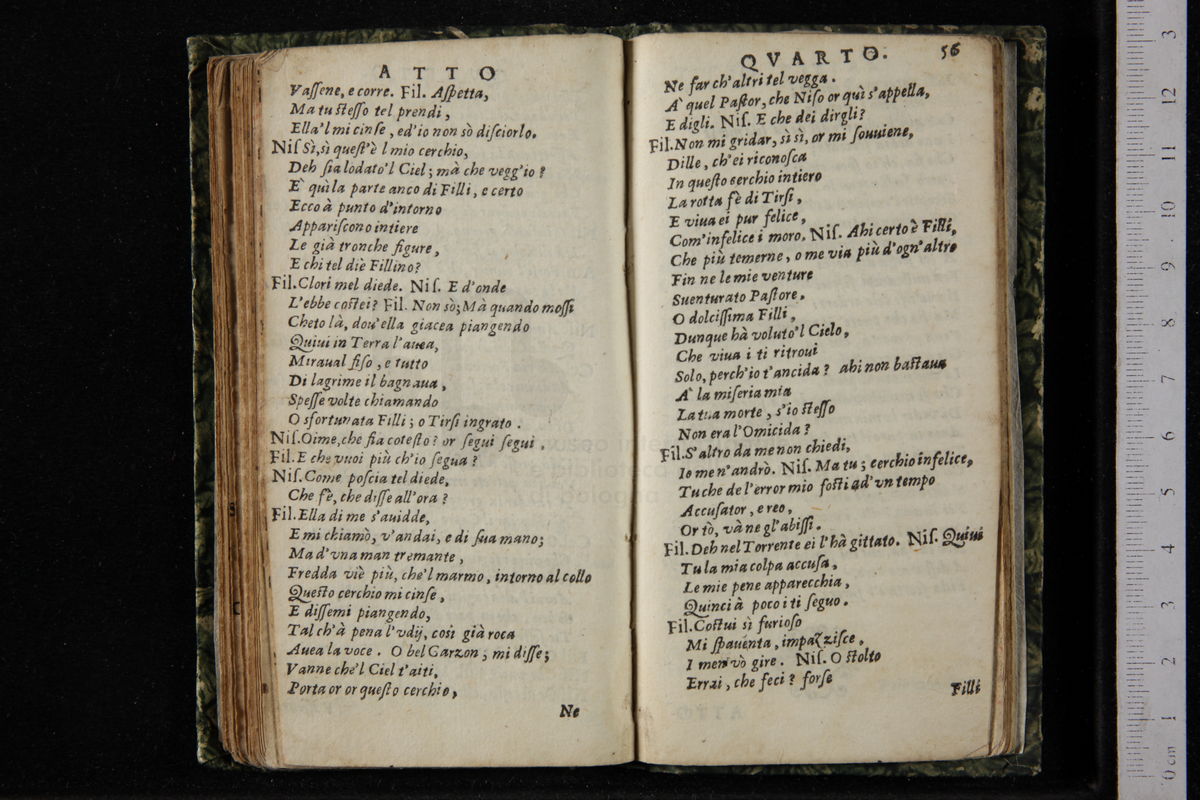 ATTO
Vaſſene, e corre. Fil. Aſpetta,
Ma tu ſteſſo tel prendi,
Ella'l mi cinſe, ed'io non sò diſciorlo.
Niſ Sì, sì queſt'è l mio cerchio,
Deh ſia lodato'l Ciel; mà che vegg'io?
E' quì la parte anco di Filli, e certo
Ecco à punto d'intorno
Appariſcono intiere
Le già tronche figure,
E chi tel diè Fillino?
Fil. Clori mel diede. Niſ. E d'onde
L'ebbe coſtei? Fil. Non sò; Mà quando moſſi
Cheto là, dou'ella giacea piangendo
Quiui in Terra l'auea,
Miraual fiſo, e tutto
Di lagrime il bagnaua,
Speſſe volte chiamando
O sfortunata Filli; o Tirſi ingrato.
Niſ. Oime, che fia coteſto? or ſegui ſegui.
Fil. E che vuoi più ch'io ſegua?
Niſ. Come poſcia tel diede,
Che fè, che diſſe all'ora?
Fil. Ella di me s'auidde,
E mi chiamò, v'andai, e di ſua mano;
Ma d'vna man tremante,
Fredda viè più, che'l marmo, intorno al collo
Queſto cerchio mi cinſe,
E diſſemi piangendo,
Tal ch'à pena l'vdij, così già roca
Auea la voce. O bel Garzon, mi diſſe;
Vanne che'l Ciel t'aiti,
Porta or or queſto cerchio,
Ne
QVARTO. 56
Ne far ch'altri tel vegga.
A' quel Paſtor, che Niſo or quì s'appella,
E digli. Niſ. E che dei dirgli?
Fil. Non mi gridar, sì sì, or mi ſouuiene,
Dille, ch'ei riconoſca
In queſto cerchio intiero
La rotta fè di Tirſi,
E viua ei pur felice,
Com'infelice i moro. Niſ. Ahi certo è Filli,
Che più temerne, o me via più d'ogn'altro
Fin ne le mie venture
Suenturato Paſtore,
O dolciſſima Filli,
Dunque hà voluto'l Cielo,
Che viua i ti ritroui
Solo, perch'io t'ancida? ahi non baſtaua
A' la miſeria mia
La tua morte, s'io ſteſſo
Non era l'Omicida?
Fil. S'altro da me non chiedi,
Io me n'andrò. Niſ. Ma tu; cerchio infelice,
Tu che de l'error mio foſti ad'vn tempo
Accuſator, e reo,
Or tò, và ne gl'abiſſi.
Fil. Deh nel Torrente ei l'hà gittato. Niſ. Quiui
Tu la mia colpa accuſa,
Le mie pene apparecchia,
Quinci à poco i ti ſeguo.
Fil. Coſtui sì furioſo
Mi ſpauenta, impazziſce,
I men vò gire. Niſ. O ſtolto
Errai, che feci? forſe
Filli
museo inter
e biblioteca
di bologna